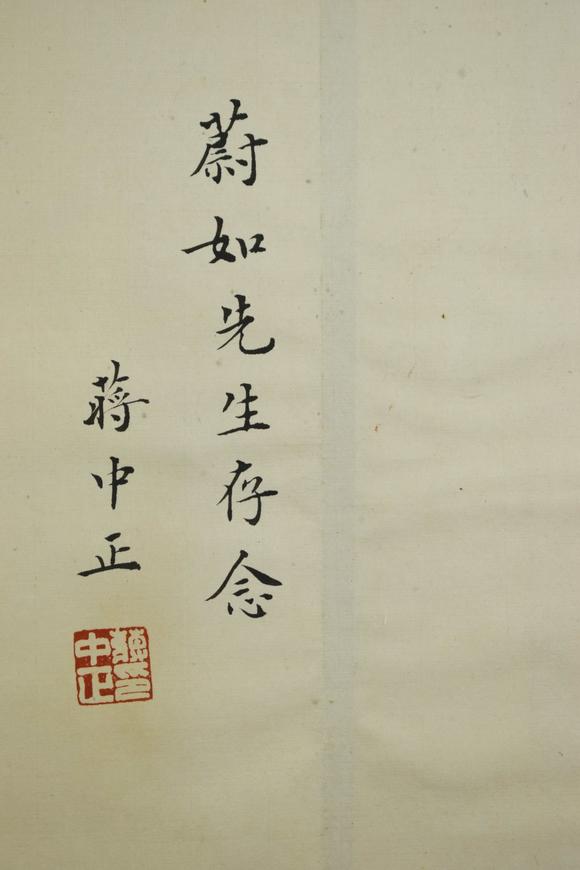 蔚如先生存念
蔣中正
蔣印中正